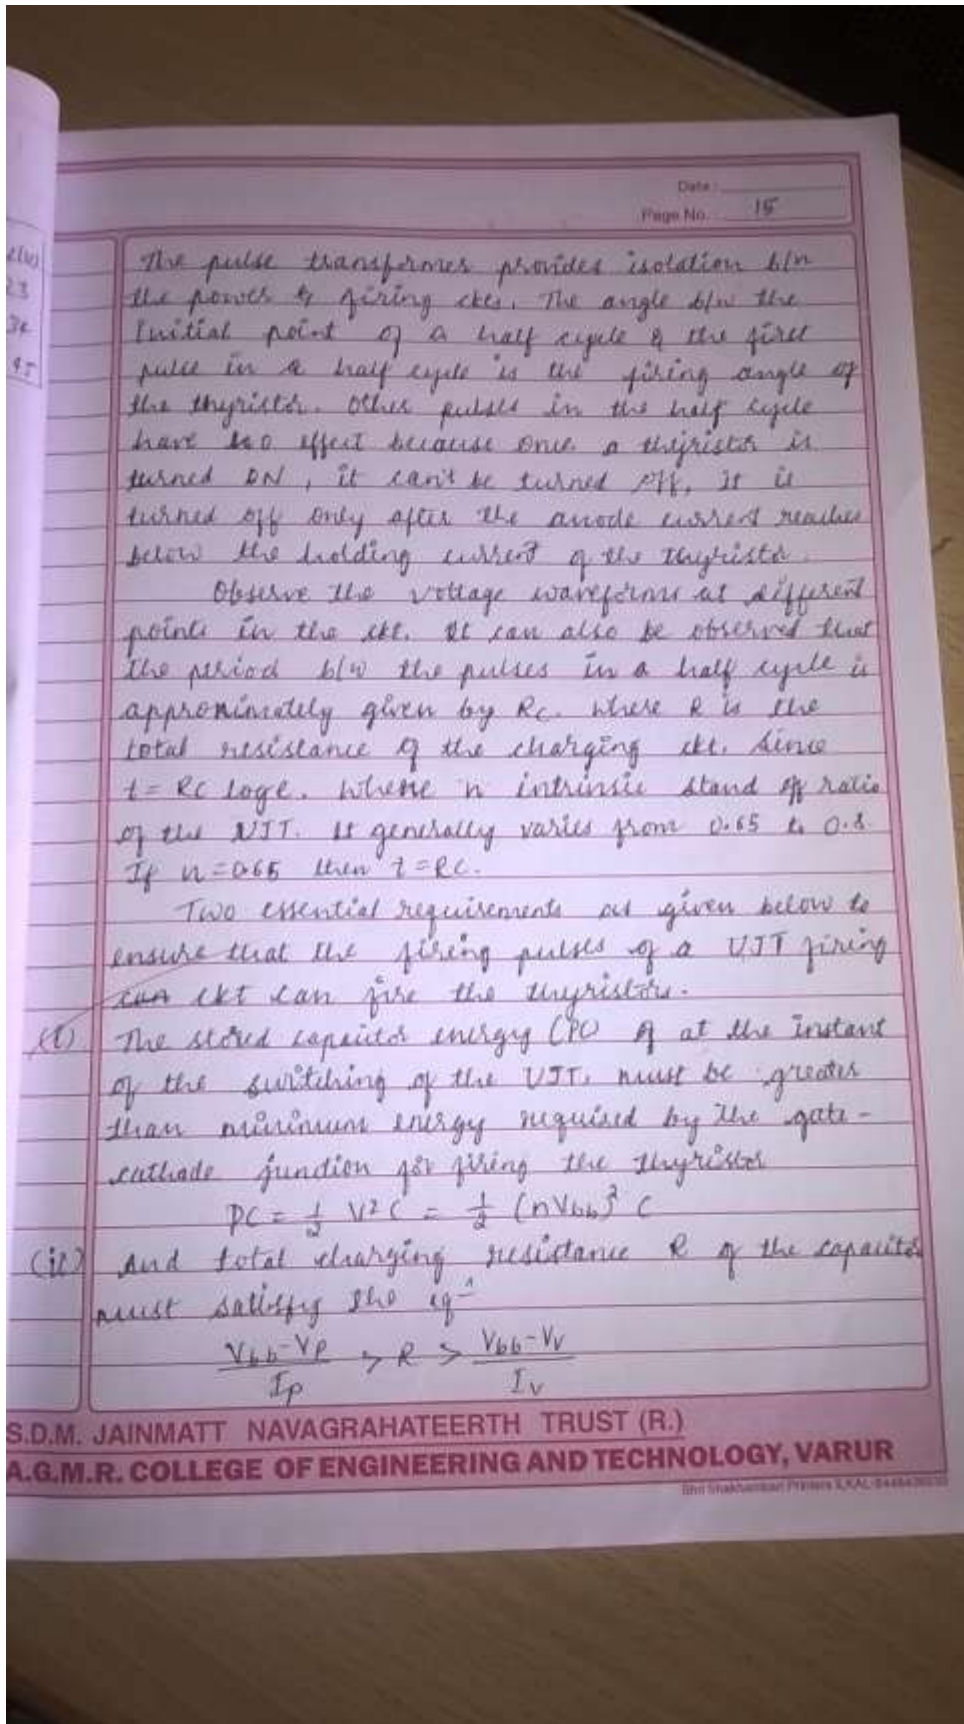 Date :
Page No. 15
The pulse transformer provides isolation b/n
the power & firing ckts. The angle b/w the
Initial point of a half cycle & the first
pulse in a half cycle is the firing angle of
the thyristor. Other pulses in the half cycle
have no effect because once a thyristor is
turned ON, it can't be turned off. It is
turned off only after the anode current reaches
below the holding current of the thyristor.
Observe the voltage waveforms at different
points in the ckt. It can also be observed that
the period b/w the pulses in a half cycle is
approximately given by Rc. where R is the
total resistance of the charging ckt. Since
t = RC loge. Where n intrinsic stand off ratio
of the UJT. It generally varies from 0.65 to 0.8.
If n = 0.65 then t = RC.
Two essential requirements as given below to
ensure that the firing pulses of a UJT firing
ckt can fire the thyristor.
(i) The stored capacitor energy (PC) at the instant
of the switching of the UJT, must be greater
than minimum energy required by the gate-
cathode junction for firing the thyristor
PC = 1/2 V² C = 1/2 (nVbb)² C
(ii) And total charging resistance R of the capacitor
must satisfy the eqn
Vbb-Vp / Ip > R > Vbb-Vv / Iv
S.D.M. JAINMATT NAVAGRAHATEERTH TRUST (R.)
A.G.M.R. COLLEGE OF ENGINEERING AND TECHNOLOGY, VARUR
Shri Shakhambari Printers ILKAL